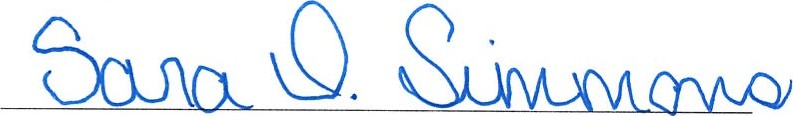 Sara D. Simmons